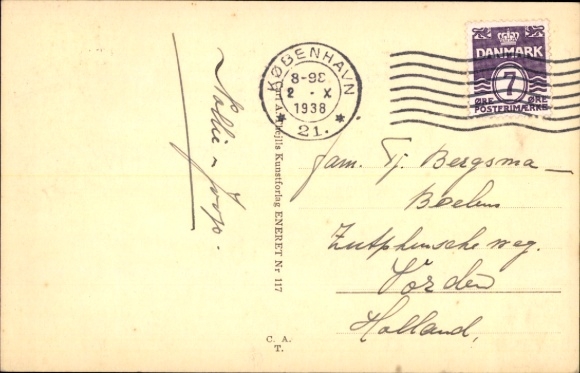 KØBENHAVN
8-9E
2 · X
1938
* 21. *
DANMARK
7
ØRE ØRE
POSTFRIMÆRKE
Nollie en Joop.
Kunstforlag ENERET Nr 117
Fam. Tj. Bergsma —
Boelens
Zutphensche weg.
Vorden
Holland.
C. A.
T.